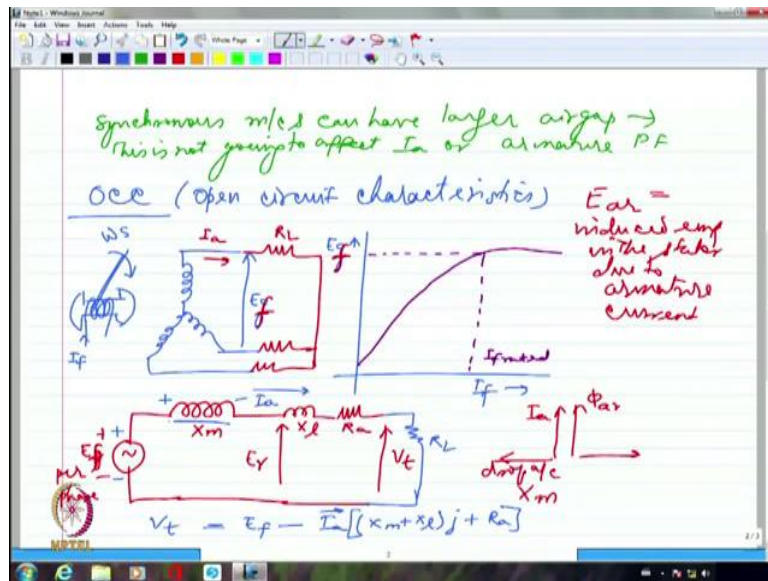 Note1 - Windows Journal
File Edit View Insert Actions Tools Help
Whole Page
B I
synchronous m/cs can have larger airgap →
This is not going to affect Ia or armature PF
OCC (open circuit characteristics)
Ear =
induced emf
in the stator
due to
armature
current
ωs
If
Ia
RL
Ef
Ef
If rated
If →
+ Xm -
Ia
Xl
Ra
RL
+ +
Ef
per
phase
- -
Er
Vt
Ia
Φar
drop a/c
Xm
Vt = Ef - Ia[(Xm+Xl)j + Ra]
NPTEL
2/3
2